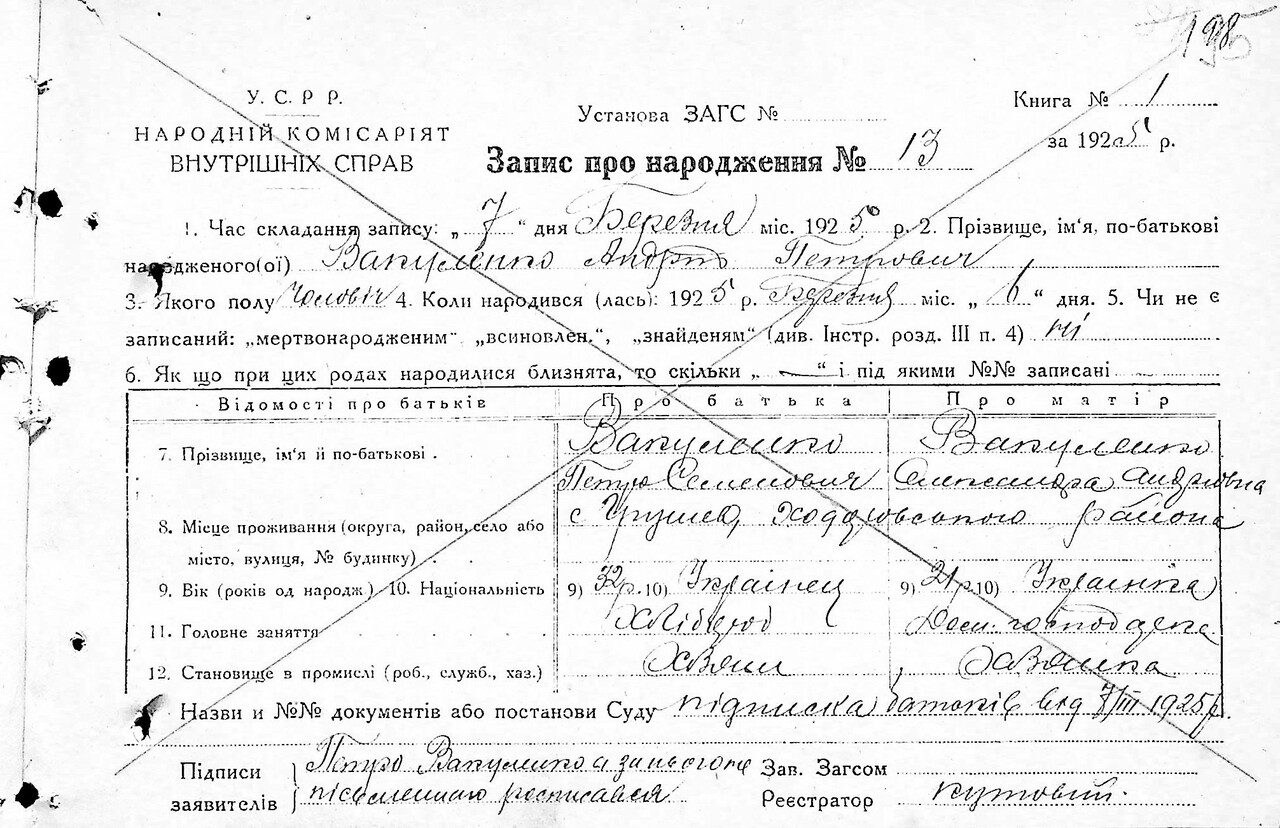 198
У. С. Р. Р.
НАРОДНІЙ КОМІСАРІЯТ
ВНУТРІШНІХ СПРАВ
Установа ЗАГС №
Книга № 1
за 1925 р.
Запис про народження № 13
1. Час складання запису: „ 7 “ дня Березня міс. 1925 р. 2. Прізвище, ім'я, по-батькові
народженого(ої) Вакуленко Андрій Петрович
3. Якого полу Чоловіч 4. Коли народився (лась): 1925 р. Березня міс. „ 6 “ дня. 5. Чи не є
записаний: „мертвонародженим“ „всиновлен.“, „знайденям“ (див. Інстр. розд. III п. 4) ні
6. Як що при цих родах народилися близнята, то скільки „ — “ і під якими №№ записані —
Відомості про батьків Про батька Про матір
7. Прізвище, ім'я й по-батькові . Вакуленко Вакуленко
Петро Семенович Олександра Андріївна
8. Місце проживання (округа, район, село або с Грушев, Ходоровського района
місто, вулиця, № будинку) . .
9. Вік (років од народж.) 10. Національність 9) 32 р. 10) Українец 9) 21 р. 10) Українка
11. Головне заняття . . . . Хлібороб Дом. господарка
12. Становище в промислі (роб., служб., хаз.) Хазяин Хазяйка
Назви и №№ документів або постанови Суду підписка батьків від 7/III 1925 р.
Підписи заявителів Петро Вакуленко а за нього
письменною росписався
Зав. Загсом
Реєстратор